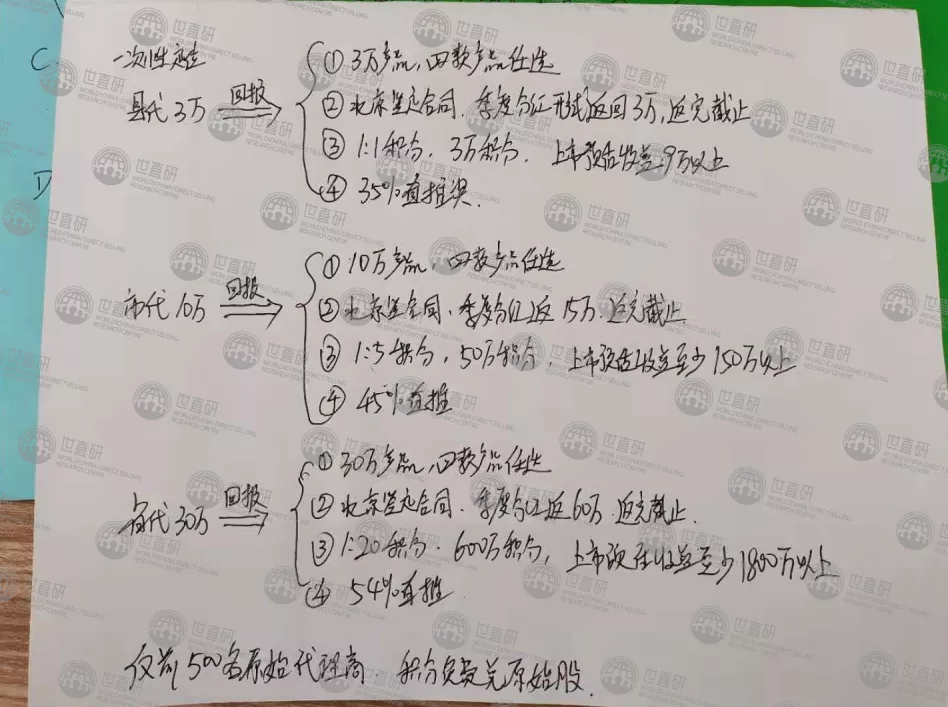 C
一次性定位
县代3万 回报
① 3万产品,四款产品任选
② 北京签定合同,季度分红形式返回3万,返完截止
③ 1:1积分,3万积分,上市预估收益9万以上
④ 35%直推奖.
D
市代10万 回报
① 10万产品,四款产品任选
② 北京签合同,季度分红返15万.返完截止
③ 1:5积分,50万积分,上市预估收益至少150万以上
④ 45%直推
省代30万 回报
① 30万产品,四款产品任选
② 北京签定合同.季度分红返60万.返完截止.
③ 1:20积分.600万积分,上市预估收益至少1800万以上
④ 54%直推.
仅前500名原始代理商.积分免费兑原始股.
世直研
WORLD(CHINA)DIRECT SELLING
RESEARCH CENTRE